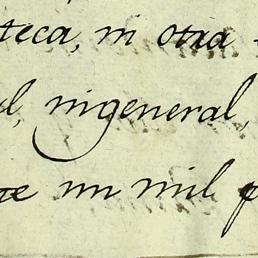 teca, ni otra
l, ni general,
un mil p